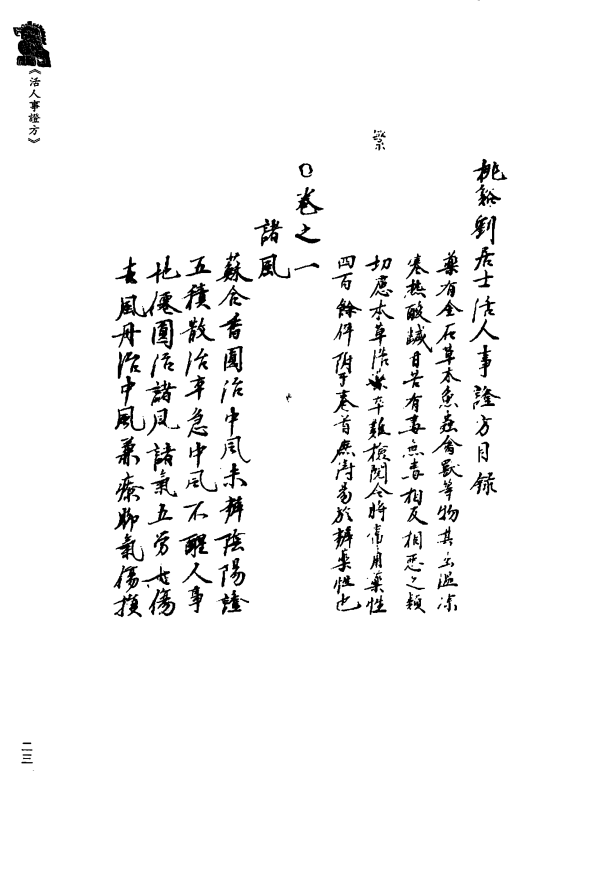 《活人事證方》
桃谿劉居士活人事證方目录
藥有金石草木魚蟲禽獸等物其出溫凉
寒熱酸鹹甘苦有毒無毒相反相惡之類
切慮本草浩繁卒難檢閱今將常用藥性
四百餘件附于卷首庶得易於辨藥性也
繁
○卷之一
諸風
蘇合香圓治中风未辨陰陽證
五積散治卒急中风不醒人事
地仙圓治諸风諸氣五劳七傷
去風丹治中風兼療脚氣傷損
二三